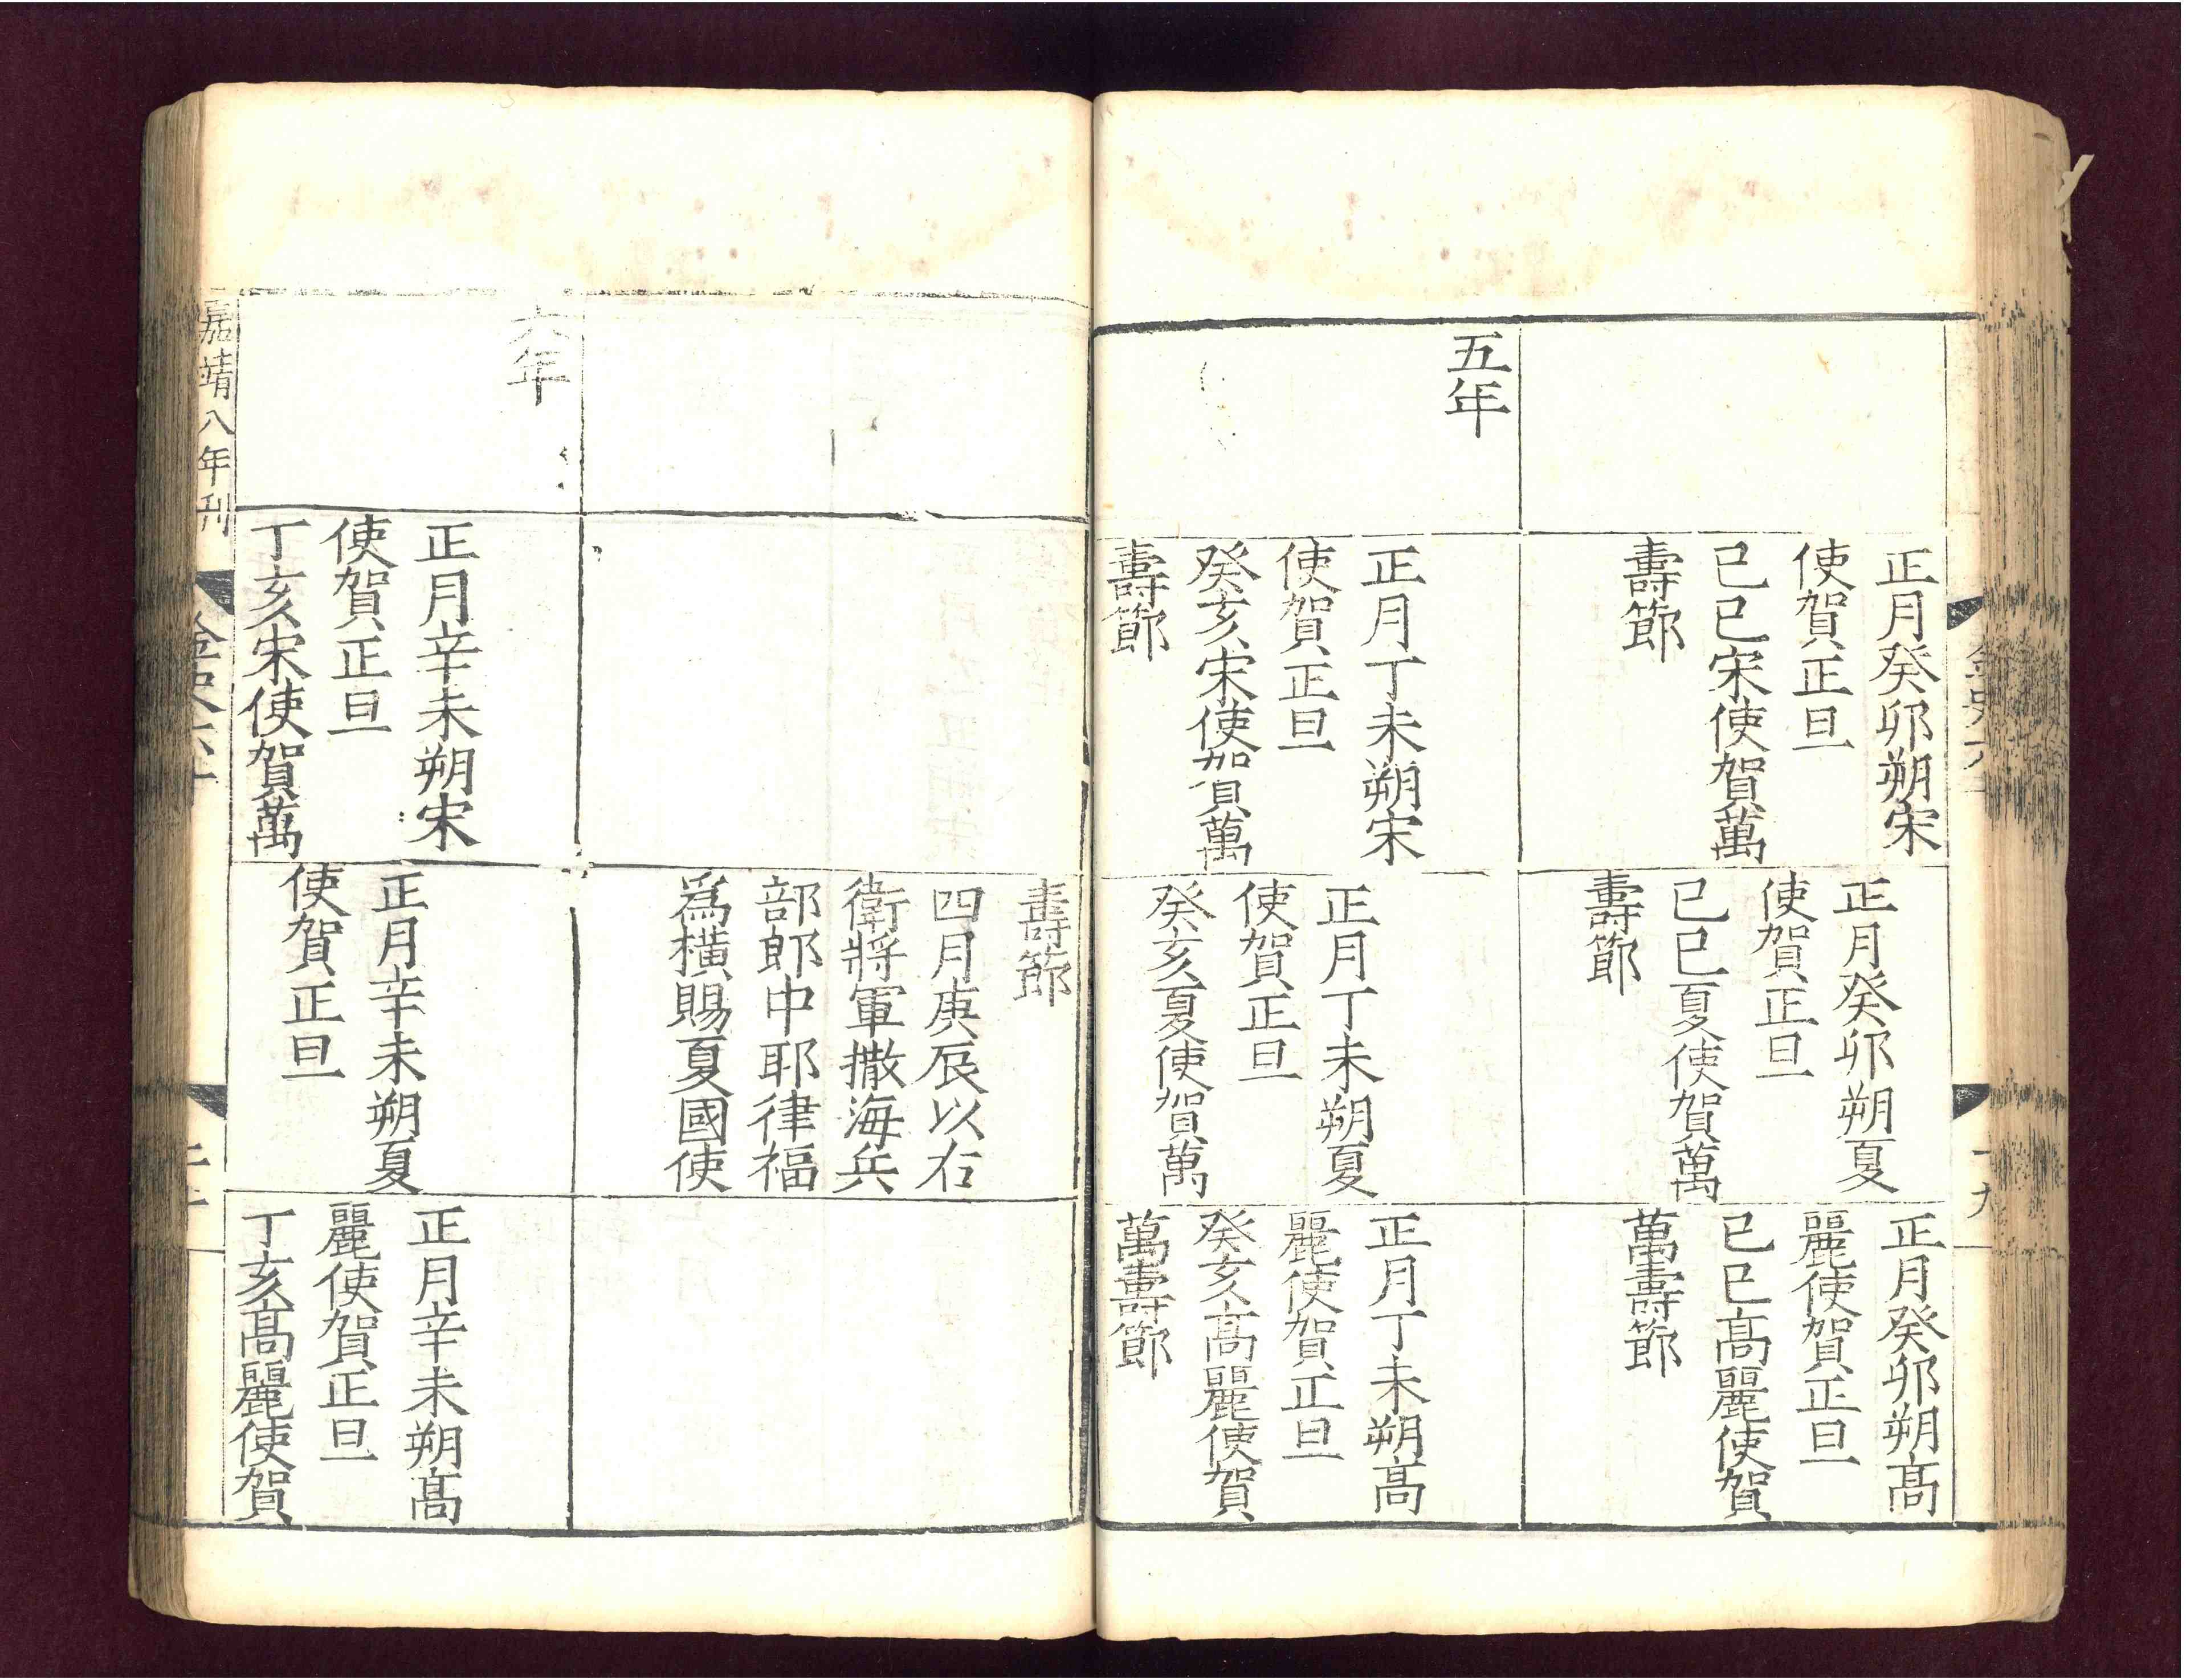 正月癸卯朔宋
使賀正旦
己巳宋使賀萬
壽節
正月癸卯朔夏
使賀正旦
己巳夏使賀萬
壽節
正月癸卯朔髙
麗使賀正旦
己巳髙麗使賀
萬壽節
五年
正月丁未朔宋
使賀正旦
癸亥宋使賀萬
壽節
正月丁未朔夏
使賀正旦
癸亥夏使賀萬
正月丁未朔髙
麗使賀正旦
癸亥髙麗使賀
萬壽節
壽節
四月庚辰以右
衛將軍撒海兵
部郎中耶律福
爲橫賜夏國使
六年
正月辛未朔宋
使賀正旦
丁亥宋使賀萬
正月辛未朔夏
使賀正旦
正月辛未朔髙
麗使賀正旦
丁亥髙麗使賀
嘉靖八年刊
金史六十